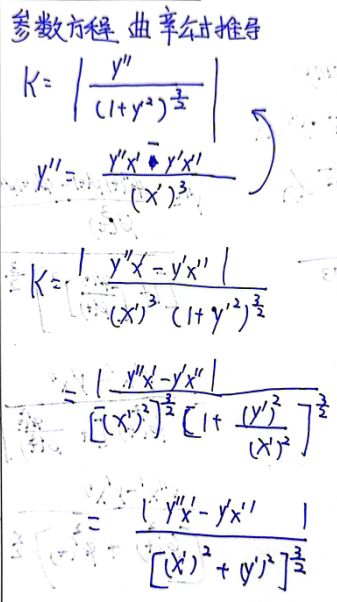 参数方程 曲率公式推导
K = | y'' / (1+y'²)^(3/2) |
y'' = (y''x' - y'x'') / (x')³
K = |y''x' - y'x''| / ((x')³ (1+y'²)^(3/2))
= |y''x' - y'x''| / ([(x')²]^(3/2) [1 + (y')²/(x')²]^(3/2))
= |y''x' - y'x''| / [(x')² + (y')²]^(3/2)